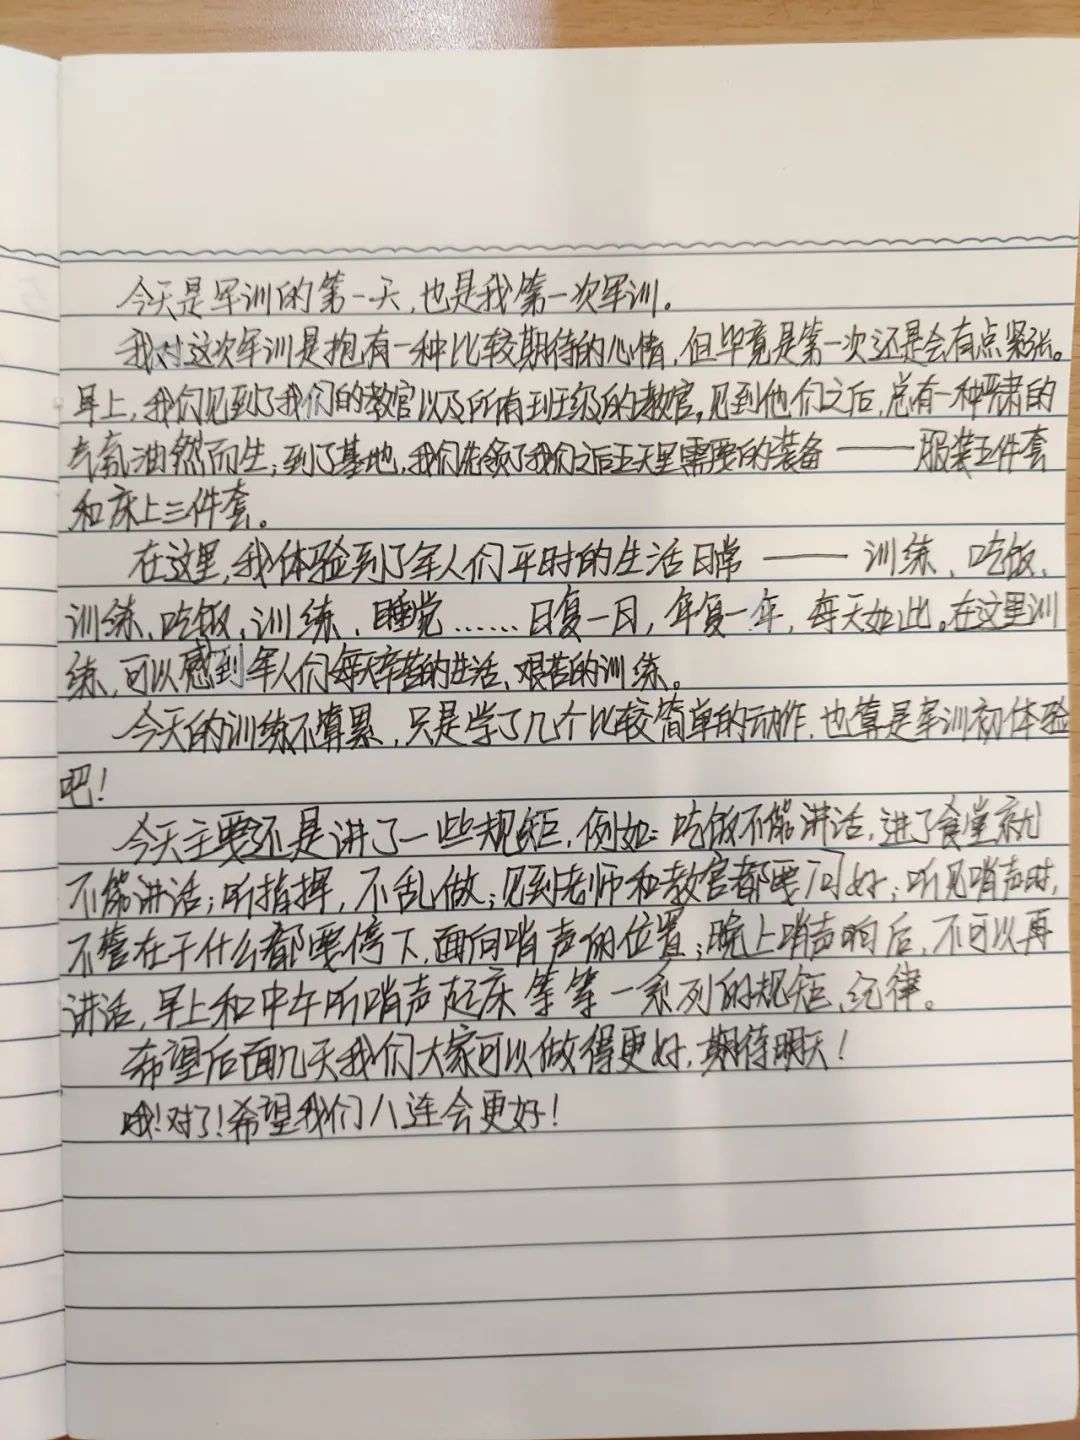 今天是军训的第一天,也是我第一次军训。
我对这次军训是抱有一种比较期待的心情,但毕竟是第一次还是会有点紧张。
早上,我们见到了我们的教官以及所有班级的教官,见到他们之后,总有一种严肃的
气氛油然而生;到了基地,我们先领了我们之后五天里需要的装备——服装五件套
和床上三件套。
在这里,我体验到了军人们平时的生活日常——训练、吃饭、
训练、吃饭、训练、睡觉……日复一日,年复一年,每天如此。在这里训
练,可以感到军人们每天辛苦的生活、艰苦的训练。
今天的训练不算累,只是学了几个比较简单的动作,也算是军训初体验
吧!
今天主要还是讲了一些规矩,例如:吃饭不能讲话,进了食堂就
不能讲话;听指挥,不乱做;见到老师和教官都要问好;听见哨声时,
不管在干什么都要停下,面向哨声的位置;晚上哨声响后,不可以再
讲话,早上和中午听哨声起床等等一系列的规矩、纪律。
希望后面几天我们大家可以做得更好,期待明天!
哦!对了!希望我们八连会更好!